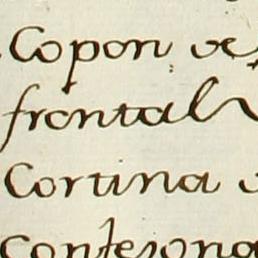 Copon de
frontal
Cortina